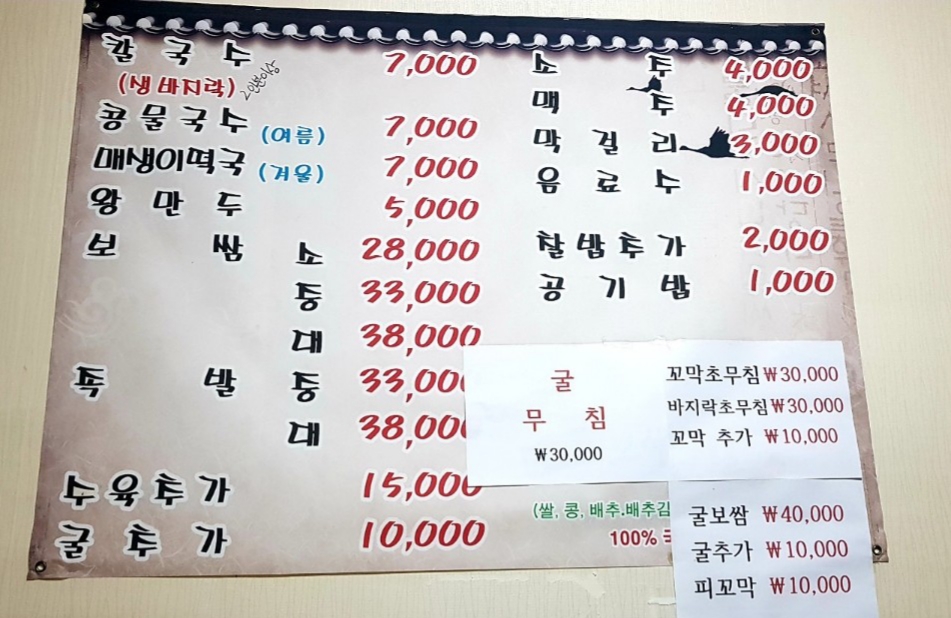 칼국수 7,000
(생 바지락) 2인분이상
콩물국수 (여름) 7,000
매생이떡국 (겨울) 7,000
왕만두 5,000
보쌈 소 28,000
중 33,000
대 38,000
족발 중 33,000
대 38,000
수육추가 15,000
굴추가 10,000
소주 4,000
맥주 4,000
막걸리 3,000
음료수 1,000
찰밥추가 2,000
공기밥 1,000
굴
무침
₩30,000
꼬막초무침 ₩30,000
바지락초무침 ₩30,000
꼬막 추가 ₩10,000
(쌀, 콩, 배추.배추김
100%
굴보쌈 ₩40,000
굴추가 ₩10,000
피꼬막 ₩10,000